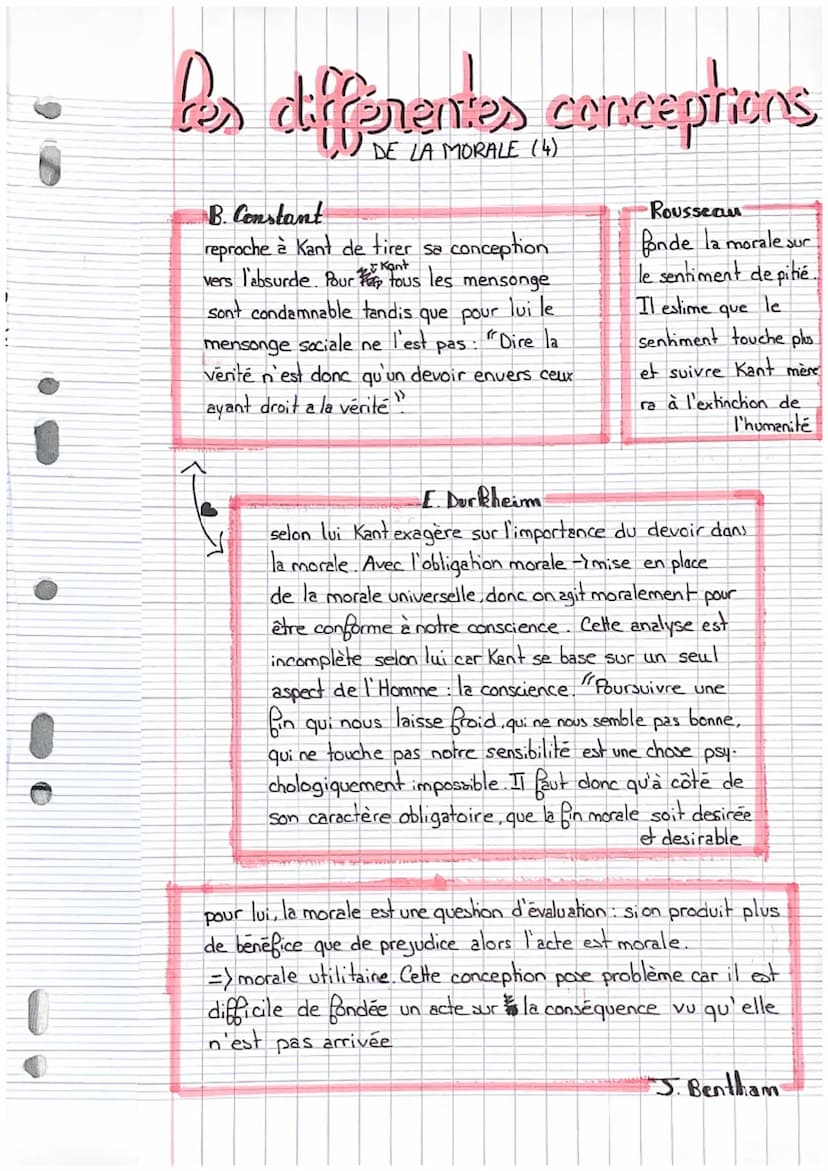 Les différentes conceptions
DE LA MORALE (4)
B. Constant
reproche à Kant de tirer sa conception
vers l'absurde. Pour Kant tous les mensonge
sont condamnable tandis que pour lui le
mensonge sociale ne l'est pas : "Dire la
vérité n'est donc qu'un devoir envers ceux
ayant droit a la vérité".
Rousseau
fonde la morale sur
le sentiment de pitié.
Il estime que le
sentiment touche plus
et suivre Kant mène
ra à l'extinction de
l'humanité
E. Durkheim
selon lui Kant exagère sur l'importance du devoir dans
la morale. Avec l'obligation morale → mise en place
de la morale universelle, donc on agit moralement pour
être conforme à notre conscience. Cette analyse est
incomplète selon lui car Kant se base sur un seul
aspect de l'Homme : la conscience. "Poursuivre une
fin qui nous laisse froid, qui ne nous semble pas bonne,
qui ne touche pas notre sensibilité est une chose psy-
chologiquement impossible. Il faut donc qu'à côté de
son caractère obligatoire, que la fin morale soit desirée
et desirable
pour lui, la morale est une question d'évaluation : si on produit plus
de bénéfice que de prejudice alors l'acte est morale.
=> morale utilitaire. Cette conception pose problème car il est
difficile de fondée un acte sur la conséquence vu qu'elle
n'est pas arrivée
J. Bentham